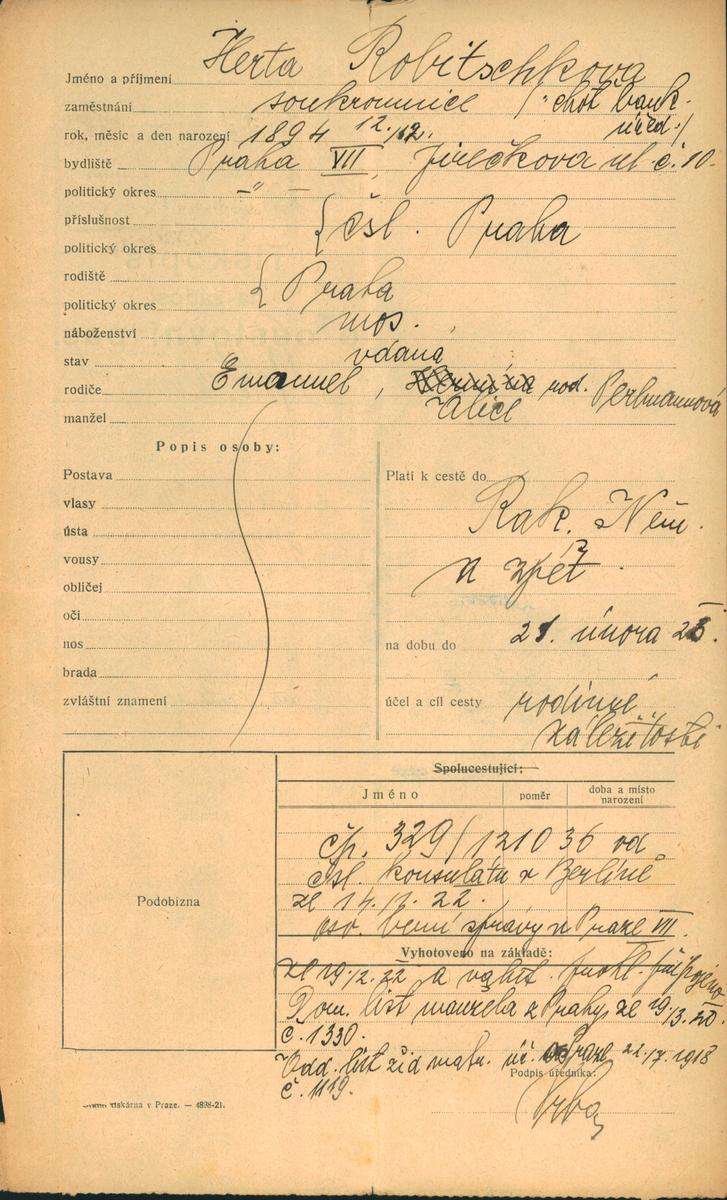 Jméno a příjmení Herta Robitschkova
zaměstnání soukromnice /choť bank.
úřed./
rok, měsíc a den narození 1894 12./12.
bydliště Praha VII, Jirečkova ul. č. 10.
politický okres –"–
příslušnost { čsl. Praha
politický okres
rodiště { Praha
politický okres
náboženství mos.
stav vdaná
rodiče Emanuel, rod. Perlmannová
Alice
manžel
Popis osoby:
Postava
vlasy
ústa
vousy
obličej
oči
nos
brada
zvláštní znamení
Platí k cestě do
Rak. Něm.
a zpět.
na dobu do 21. února 25.
účel a cíl cesty rodinné
záležitosti
Podobizna
Spolucestující:
Jméno poměr doba a místo
narození
čp. 329/121036 od
čsl. konsulátu v Berlíně
ze 14./2. 22.
osv. berní správy v Praze VII.
Vyhotoveno na základě:
ze 19./2. 22 a
Dom. list manžela z Prahy ze 19./3. 20.
č. 1330.
Odd. list žid. matr. úř. Praze 21./7. 1918
č. 1119.
Podpis úředníka:
tiskárna v Praze. — 4898-21.